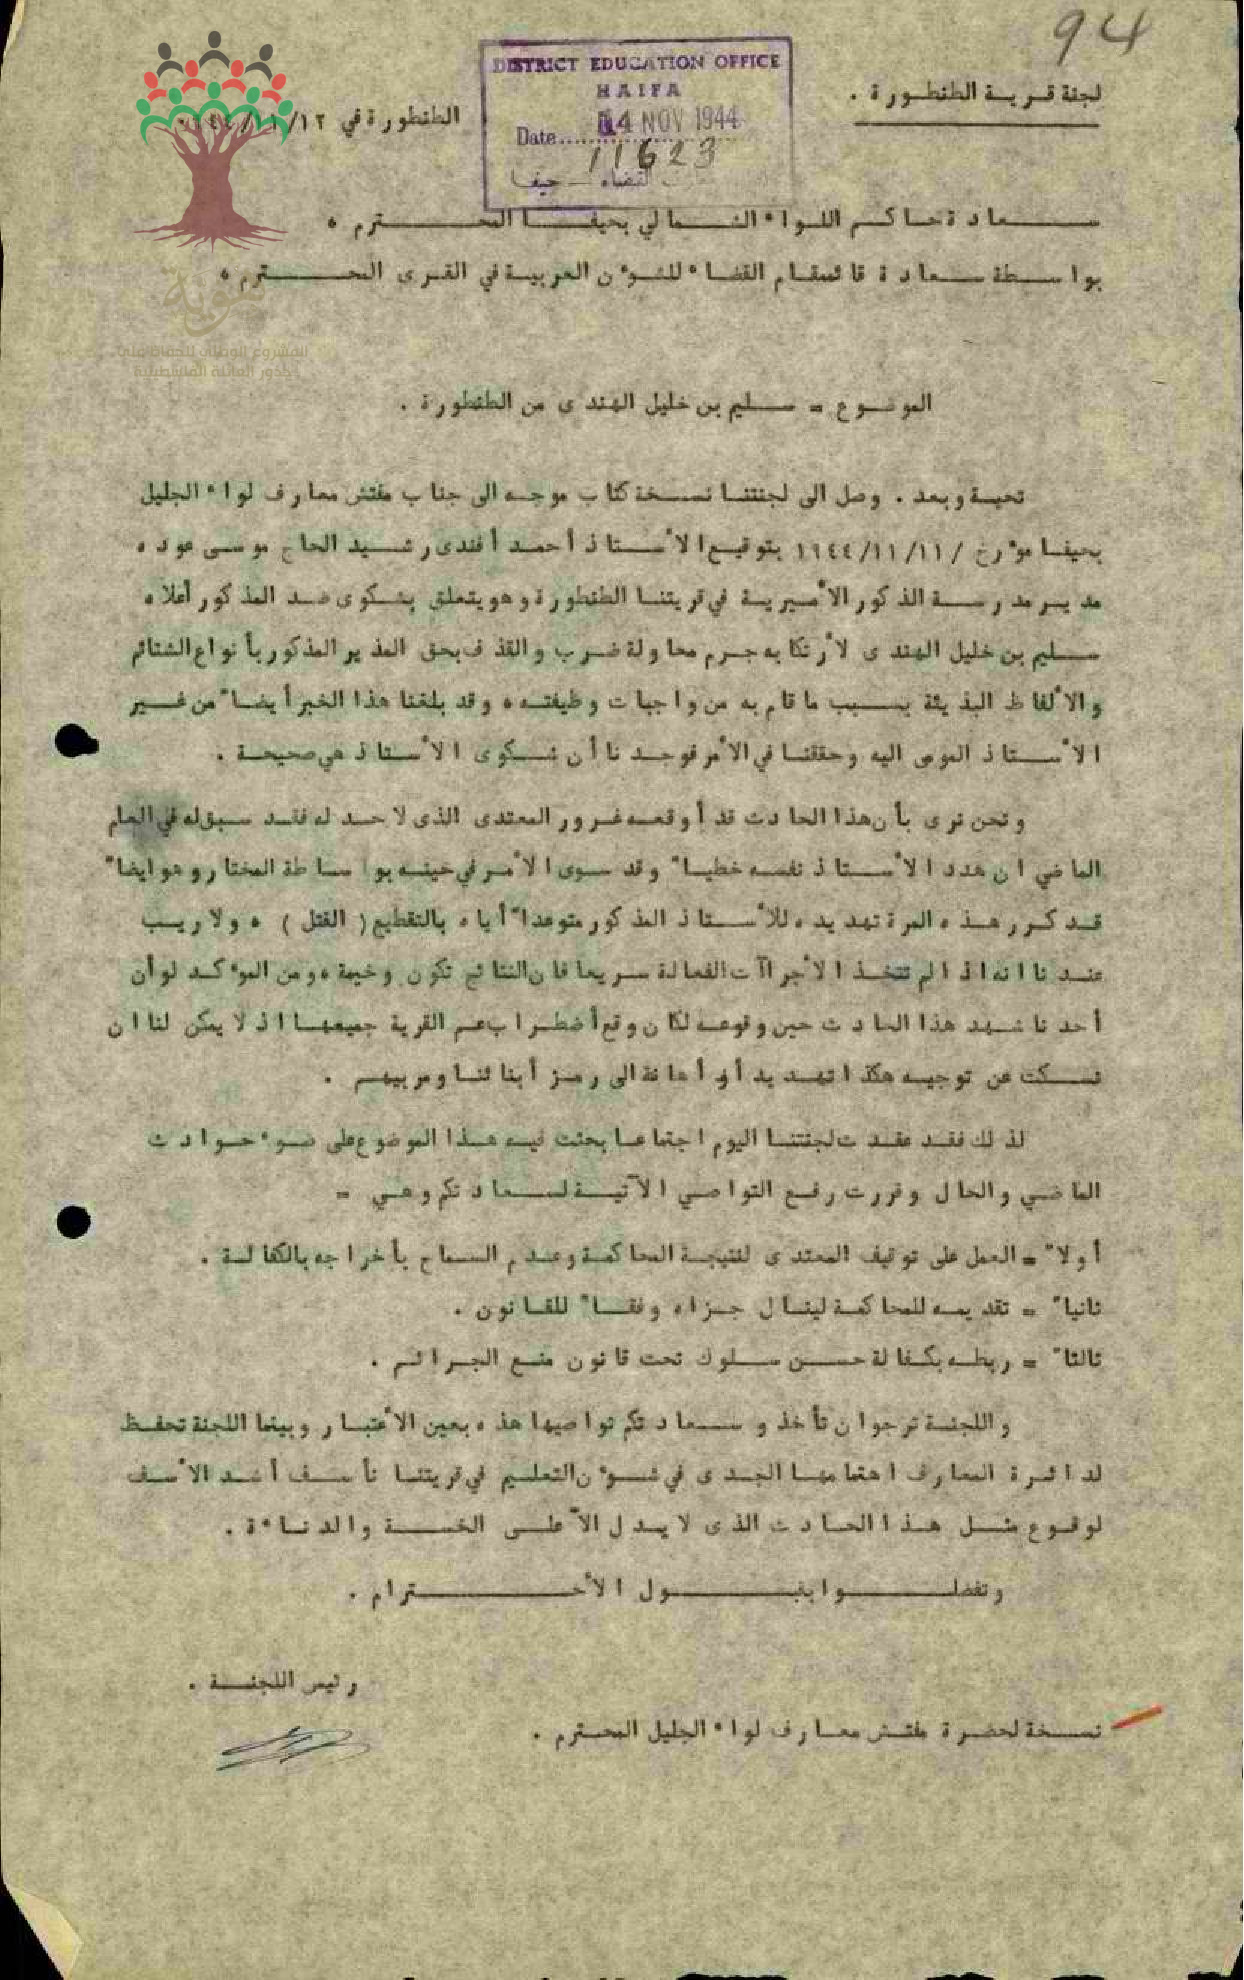 94
لجنة قرية الطنطورة .
DISTRICT EDUCATION OFFICE
HAIFA
Date 14 NOV 1944
11623
القضاء – حيفا
الطنطورة في ١٢/١١/١٩٤٤
سعادة حاكم اللواء الشمالي بحيفا المحترم ٠
بواسطة سعادة قائمقام القضاء للشؤون العربية في القرى المحترم ٠
هوية
المشروع الوطني للحفاظ على
جذور العائلة الفلسطينية
الموضوع = سليم بن خليل الهندى من الطنطورة .
تحية وبعد . وصل الى لجنتنا نسخة كتاب موجه الى جناب مفتش معارف لواء الجليل
بحيفا مؤرخ / ١٩٤٤/١١/١١ بتوقيع الأستاذ أحمد أفندى رشيد الحاج موسى عوده
مدير مدرسة الذكور الأميرية في قريتنا الطنطورة وهو يتعلق بشكوى ضد المذكور أعلاه
سليم بن خليل الهندى لأرتكابه جرم محاولة ضرب والقذف بحق المدير المذكور بأنواع الشتائم
والألفاظ البذيئة بسبب ما قام به من واجبات وظيفته ٠ وقد بلغنا هذا الخبر أيضا" من غير
الأستاذ المومى اليه وحققنا في الأمر فوجدنا أن شكوى الأستاذ هي صحيحة .
ونحن نرى بأن هذا الحادث قد أوقعه غرور المعتدى الذى لا حد له فقد سبق له في العام
الماضي ان هدد الأستاذ نفسه خطيا" وقد سوى الأمر في حينه بواساطة المختار وهو ايضا"
قد كرر هذه المرة تهديده للأستاذ المذكور متوعدا" أياه بالتقطيع ( القتل ) ٠ ولا ريب
عندنا انه اذا لم تتخذ الأجراآت الفعالة سريعا فان النتائج تكون وخيمة ٠ ومن المؤكد لو أن
أحدنا شهد هذا الحادث حين وقوعه لكان وقع أضطراب عم القرية جميعها اذ لا يمكن لنا ان
نسكت عن توجيه هكذا تهديد أو أهانة الى رمز أبنائنا ومربيهم .
لذلك فقد عقدت لجنتنا اليوم اجتماعا بحثت فيه هذا الموضوع على ضوء حوادث
الماضي والحال وقررت رفع التواصي الآتية لسعادتكم وهي =
أولا" = العمل على توقيف المعتدى لنتيجة المحاكمة وعدم السماح بأخراجه بالكفالة .
ثانيا" = تقديمه للمحاكمة لينال جزاه وفقا" للقانون .
ثالثا" = ربطه بكفالة حسن سلوك تحت قانون منع الجرائم .
واللجنة ترجو ان تأخذو سعادتكم تواصيها هذه بعين الأعتبار وبينما اللجنة تحفظ
لدائرة المعارف اهتمامها الجدى في شؤون التعليم في قريتنا تأسف أشد الأسف
لوقوع مثل هذا الحادث الذى لا يدل الآ على الخسة والدناءة .
وتفضلوا بقبول الأحترام .
رئيس اللجنة .
نسخة لحضرة مفتش معارف لواء الجليل المحترم .